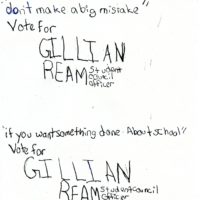 "don't make a big mistake"
Vote for
GILLIAN
REAM student
council
officer
"if you want something done About school"
Vote for
GILLIAN
REAM student council
officer